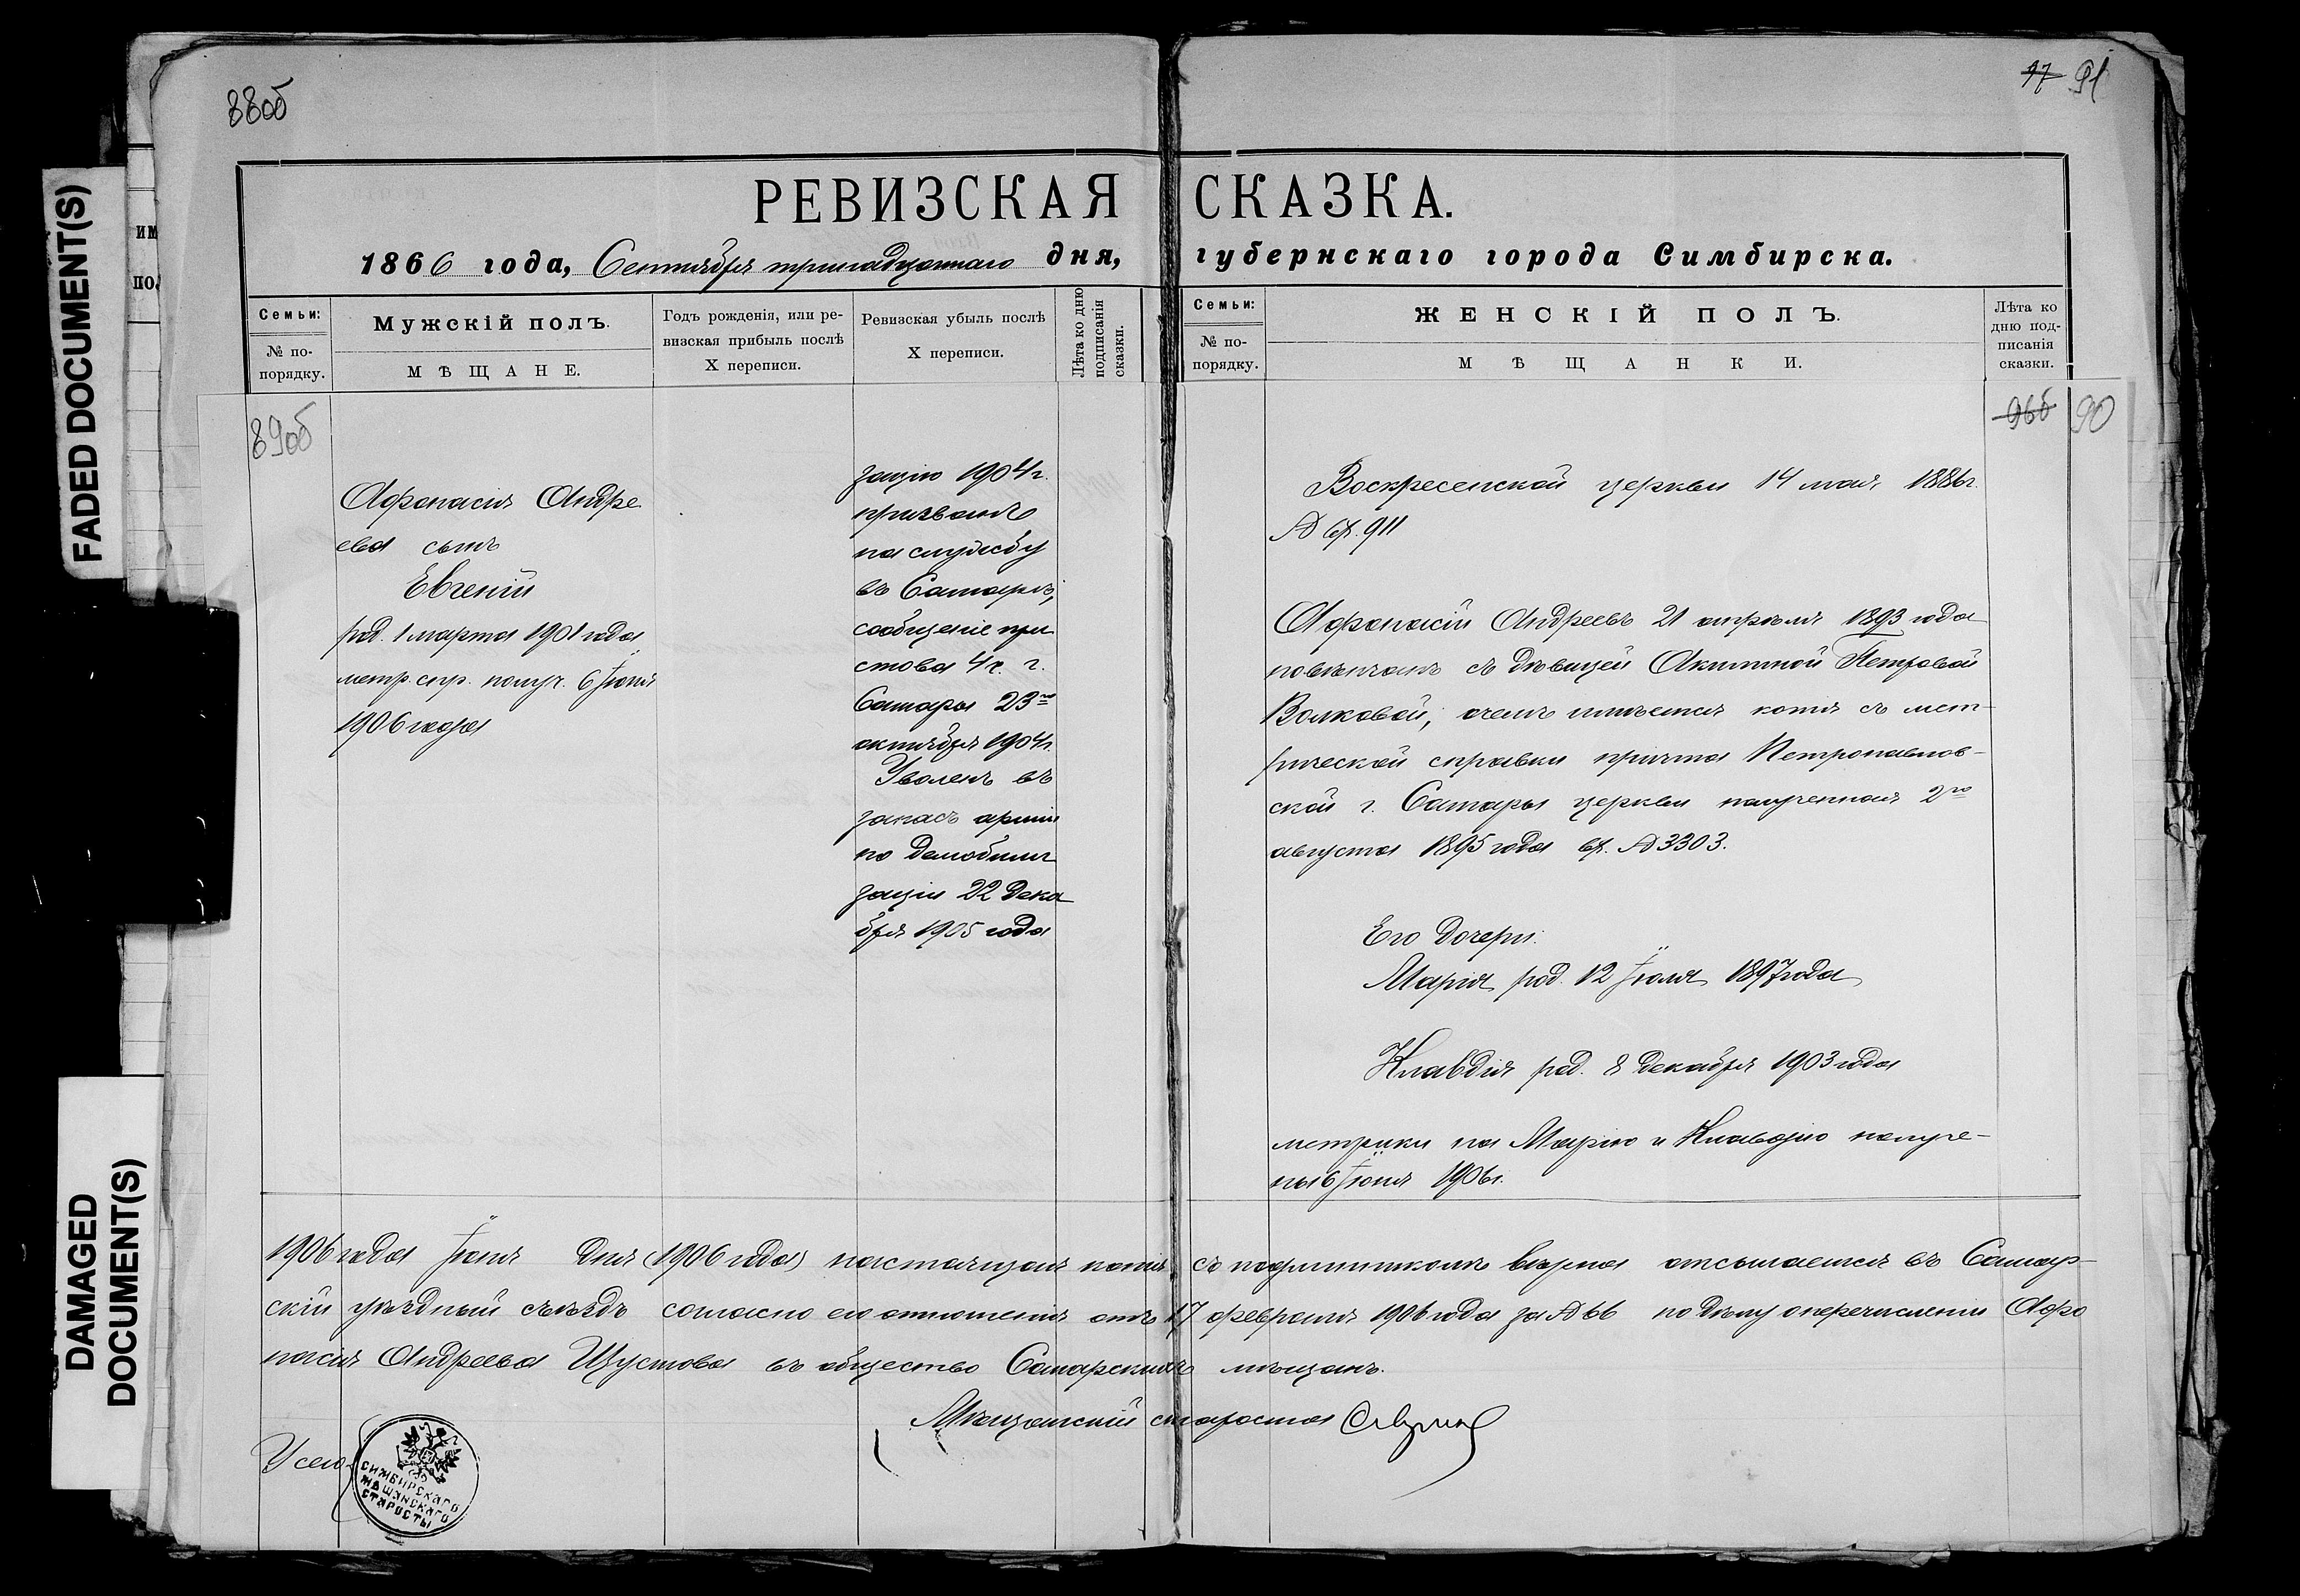 88об
17 91
РЕВИЗСКАЯ СКАЗКА.
1866 года, Сентября тринадцатаго дня, губернскаго города Симбирска.
Семьи:
№ по-
порядку.
Мужскій полъ.
МѢЩАНЕ.
Годъ рожденія, или ре-
визская прибыль послѣ
X переписи.
Ревизская убыль послѣ
X переписи.
Лѣта ко дню
подписанія
сказки.
Семьи:
№ по-
порядку.
ЖЕНСКІЙ ПОЛЪ.
МѢЩАНКИ.
Лѣта ко
дню под-
писанія
сказки.
89об
Афанасія Андре
ева сынъ
Евгеній
род. 1 марта 1901 года
метр. спр. получ. 6 Іюня
1906 года
зацію 1904 г.
призванъ
на службу
въ Самарѣ,
сообщеніе при
става 4 ч. г.
Самары 23го
октября 1904 г.
Уволенъ въ
запасъ арміи
по демобили
заціи 22 Дека
бря 1905 года
96б 90
Воскресенской церкви 14 мая 1886 г.
№ вх. 911
Афанасій Андреевъ 21 апрѣля 1893 года
повѣнчанъ съ дѣвицей Акилиной Петровой
Волковой, о чемъ имѣется копія съ мет-
рической справки причта Петропавлов-
ской г. Самары церкви полученная 2го
августа 1895 года вх. № 3303.
Его дочери:
Марія род. 12 Іюля 1897 года
Клавдія род. 8 декабря 1903 года
метрики на Марію и Клавдію получе-
ны 6 Іюня 1906 г.
1906 года Іюня дня (1906 года) настоящая копія съ подлинникомъ вѣрна отсылается въ Самар-
скій уѣздный съѣздъ согласно его отношенія отъ 17 февраля 1906 года за № 66 по дѣлу о перечисленіи Афа
насія Андреева Шустова въ общество Самарскихъ мѣщанъ.
Мѣщанскій староста
СИМБИРСКАГО
МѢЩАНСКАГО
СТАРОСТЫ
FADED DOCUMENT(S)
DAMAGED
DOCUMENT(S)
ИМ
ПО